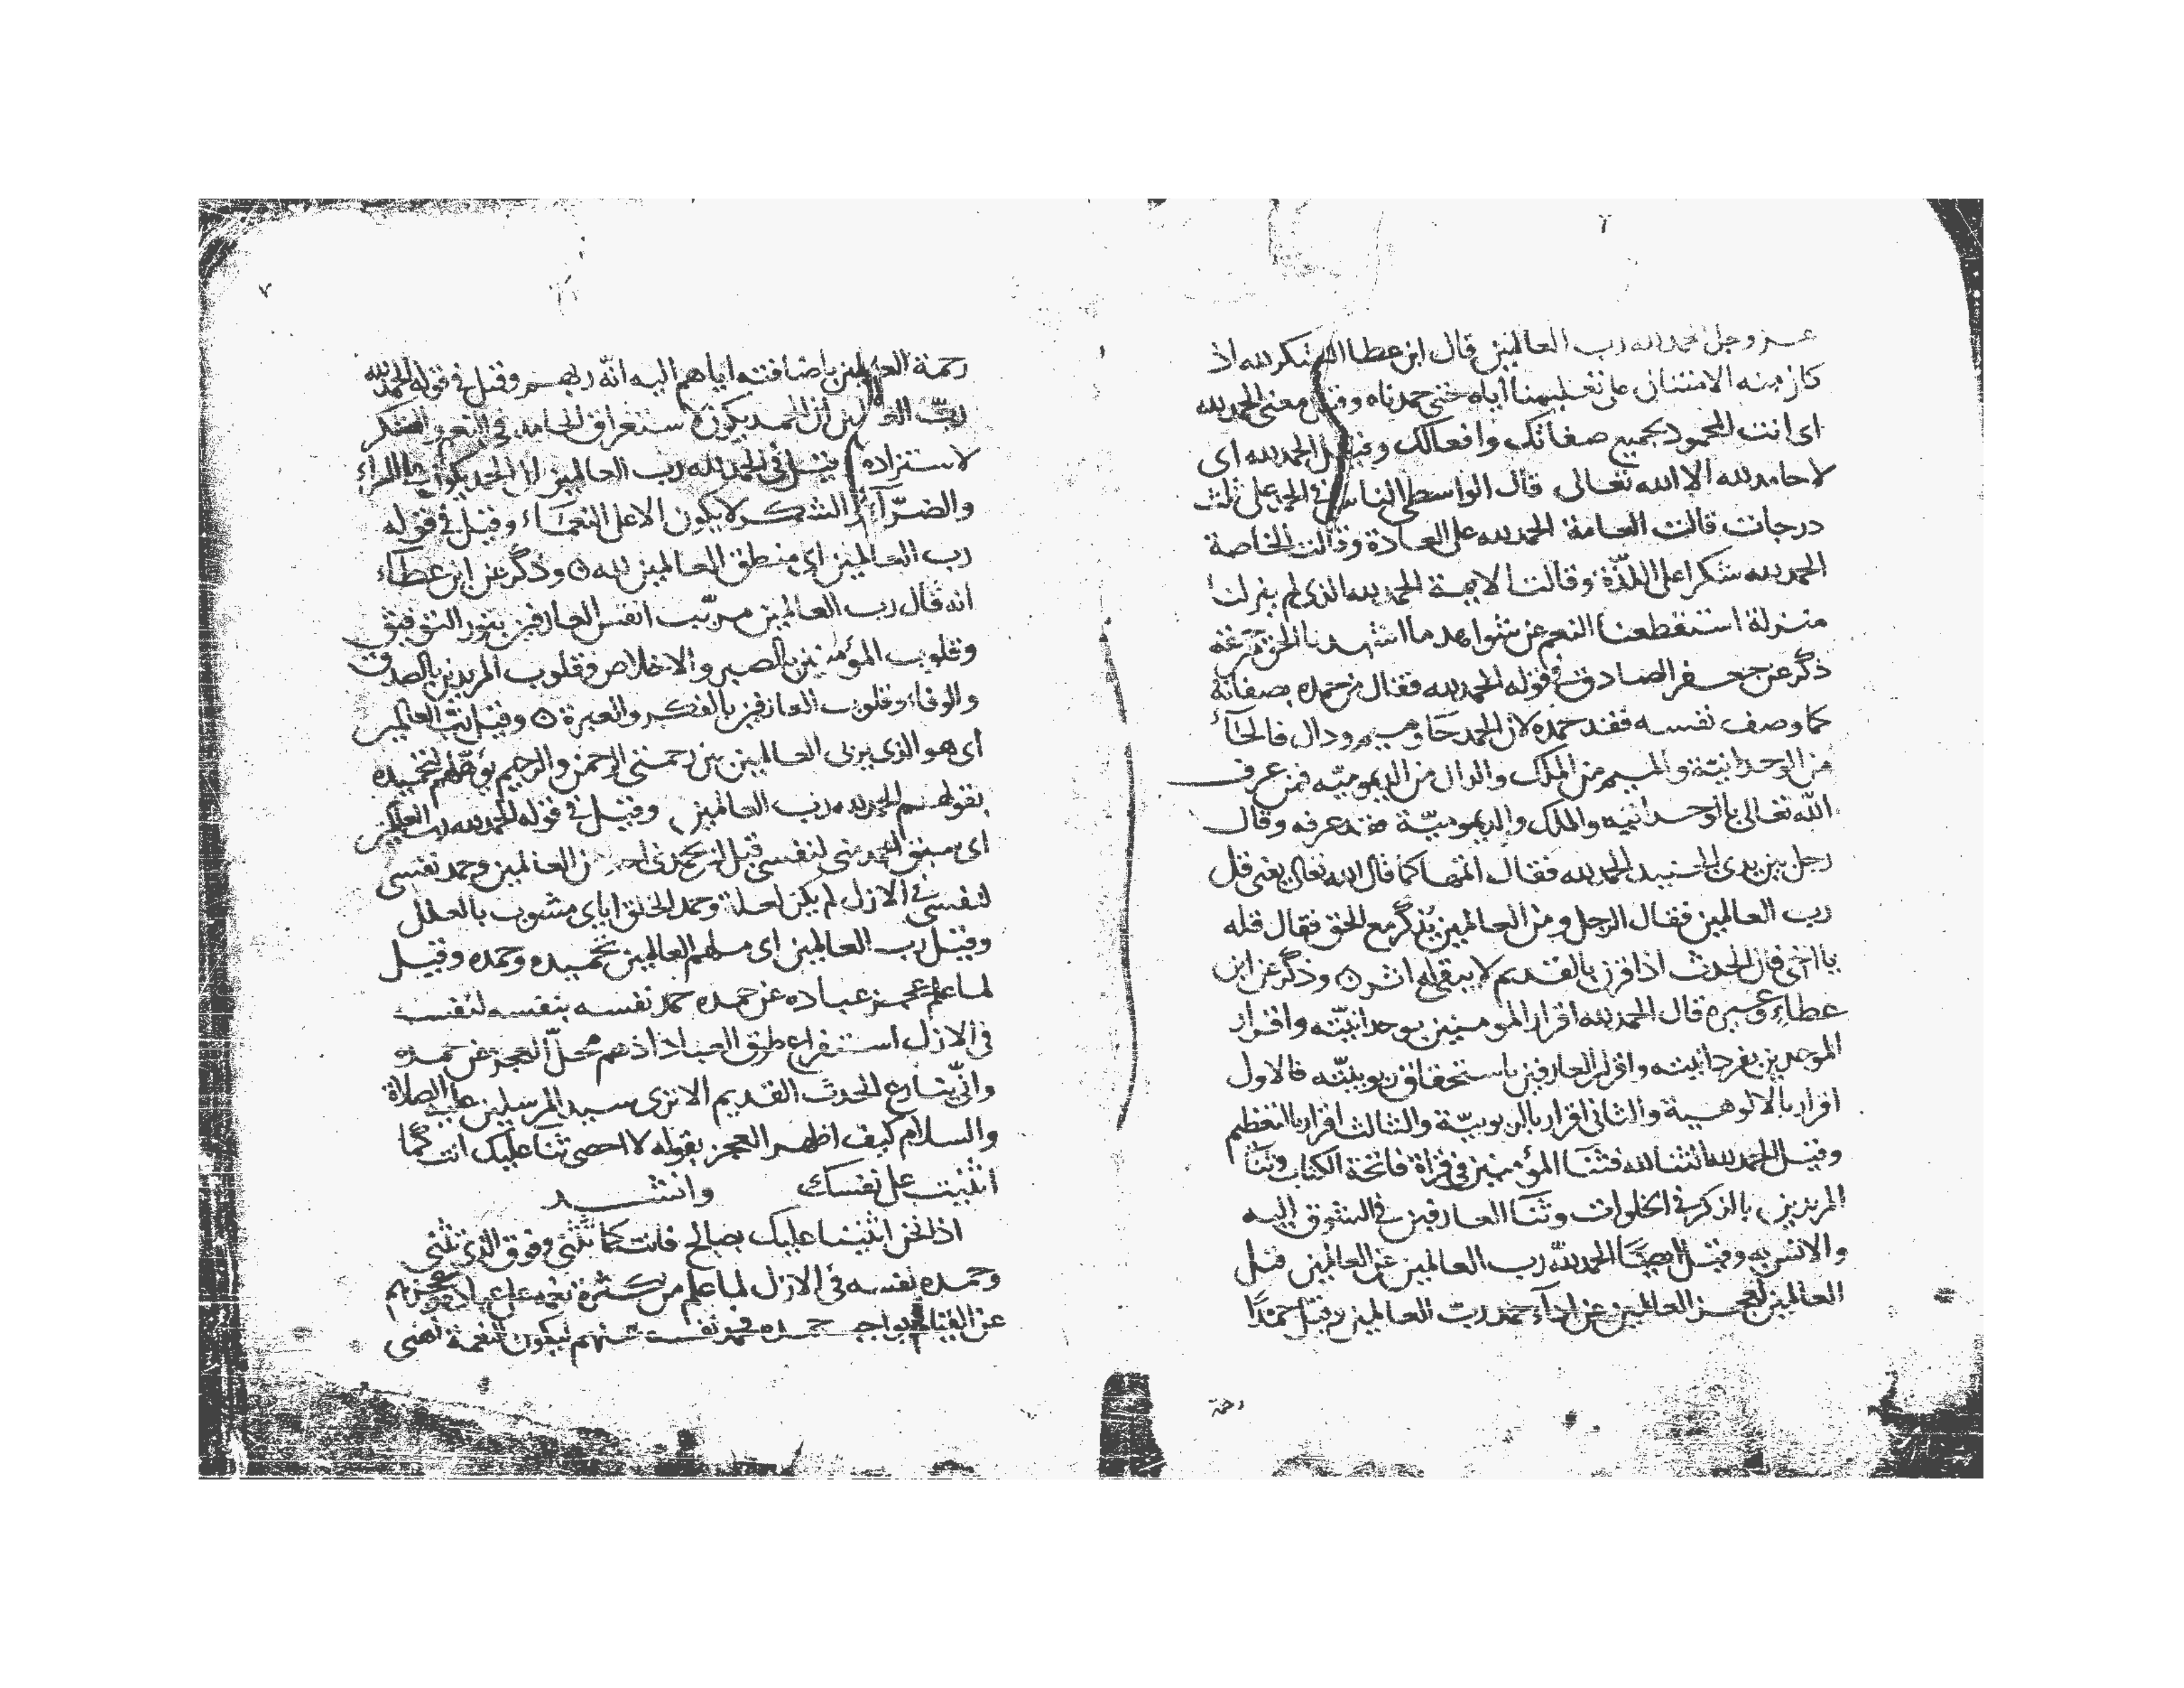 ٢
عز وجل الحمد لله رب العالمين قال ابن عطا الشكر لله اذ
كان منه الامتنان على تعليمنا اياه حتى حمدناه وقيل معنى الحمد لله
اى انت المحمود بجميع صفاتك وافعالك وقيل الحمد لله اى
لا حامد لله الا الله تعالى قال الواسطى الناس فى الحمد على ثلث
درجات قالت العامة الحمد لله على العادة وقالت الخاصة
الحمد لله شكرا على اللذّة وقالت الايمة الحمد لله الذى لم ينزلنا
منزلة استقطعنا النعم عن شواهد ما اشهدنا الحق من حقه
ذكر عن جعفر الصادق فى قوله الحمد لله فقال من حمده بصفاته
كما وصف نفسه فقد حمده لان الحمد حا وميم ودال فالحآء
من الوحدانيّة والميم من الملك والدال من الديموميّه فمن عرف
الله تعالى بالوحدانيه والملك والديموميّة فقد عرفه وقال
رجل بين يدى الجنيد الحمد لله فقال اتمها كما قال الله تعالى يعنى قل
رب العالمين فقال الرجل ومن العالمين يُذكر مع الحق فقال قله
يا اخى فان المحدث اذا قرن بالقديم لا يبقى له اثر ○ وذكر عن ابن
عطاء وغيره قال الحمد لله اقرار المومنين بوحدانيّته واقرار
الموحدين بفردانيته واقرار العارفين باستحقاق ربوبيّته فالاول
اقرار بالالوهية والثانى اقرار بالربوبيّة والثالث اقرار بالتعظيم
وقيل الحمد لله الثنا لله فثنا المؤمنين فى قراة فاتحة الكتاب وثنا
المريدين بالذكر فى الخلوات وثنا العارفين فى الشوق اليه
والانس به وقيل ايضًا الحمد لله رب العالمين عن العالمين قبل
العالمين لعجز العالمين عن اداء حمد ربّ العالمين وقيل حمدًا
رحمة
٧
رحمة العالمين باضافته اياهم اليه انّه ربهم وقيل فى قوله الحمد لله
ربّ العالمين ان الحمد يكون لاستغراق الحامد فى النعم والشكر
لاستزاده وقيل فى الحمد لله رب العالمين ان الحمد يكون على السراء
والضرّآء والشكر لا يكون الا على النعماء وقيل فى قوله
رب العالمين اى منطق العالمين لله ○ وذُكر عن ابن عطاء
انه قال رب العالمين مربّب انفس العارفين بنور التوفيق
وقلوب المؤمنين بالصبر والاخلاص وقلوب المريدين بالصدق
والوفاء وقلوب العارفين بالفكر والعبرة ○ وقيل رب العالمين
اى هو الذى يربى العالمين بين رحمتى الرحمن والرحيم يؤهلهم لتحميده
بقولهم الحمد لله رب العالمين وقيل فى قوله الحمد لله رب العالمين
اى سبق الحمد منى لنفسى قبل ان يحمدنى احد من العالمين وحمد نفسى
لنفسى فى الازل لم يكن لعلة وحمد الخلق اياى مشوب بالعلل
وقيل رب العالمين اى ملهم العالمين تحميده وحمده وقيل
لما علم عجز عباده عن حمده حمد نفسه بنفسه لنفسه
فى الازل استفراع طوق العباد اذ هم محلّ العجز عن حمده
وانّى ينازع المحدث القديم الا ترى سيد المرسلين عليه الصلاة
والسلام كيف اظهر العجز بقوله لا احصى ثنا عليك انت كما
اثنيت على نفسك وانشد
اذا نحن اثنينا عليك بصالح فانت كما نُثنى وفوق الذى نثنى
وحمده نفسه فى الازل لما علم من كثرة نعمه على عباده وعجزهم
عن القيام بواجب حمده فحمد نفسه عنهم ليكون النعمة اهنى